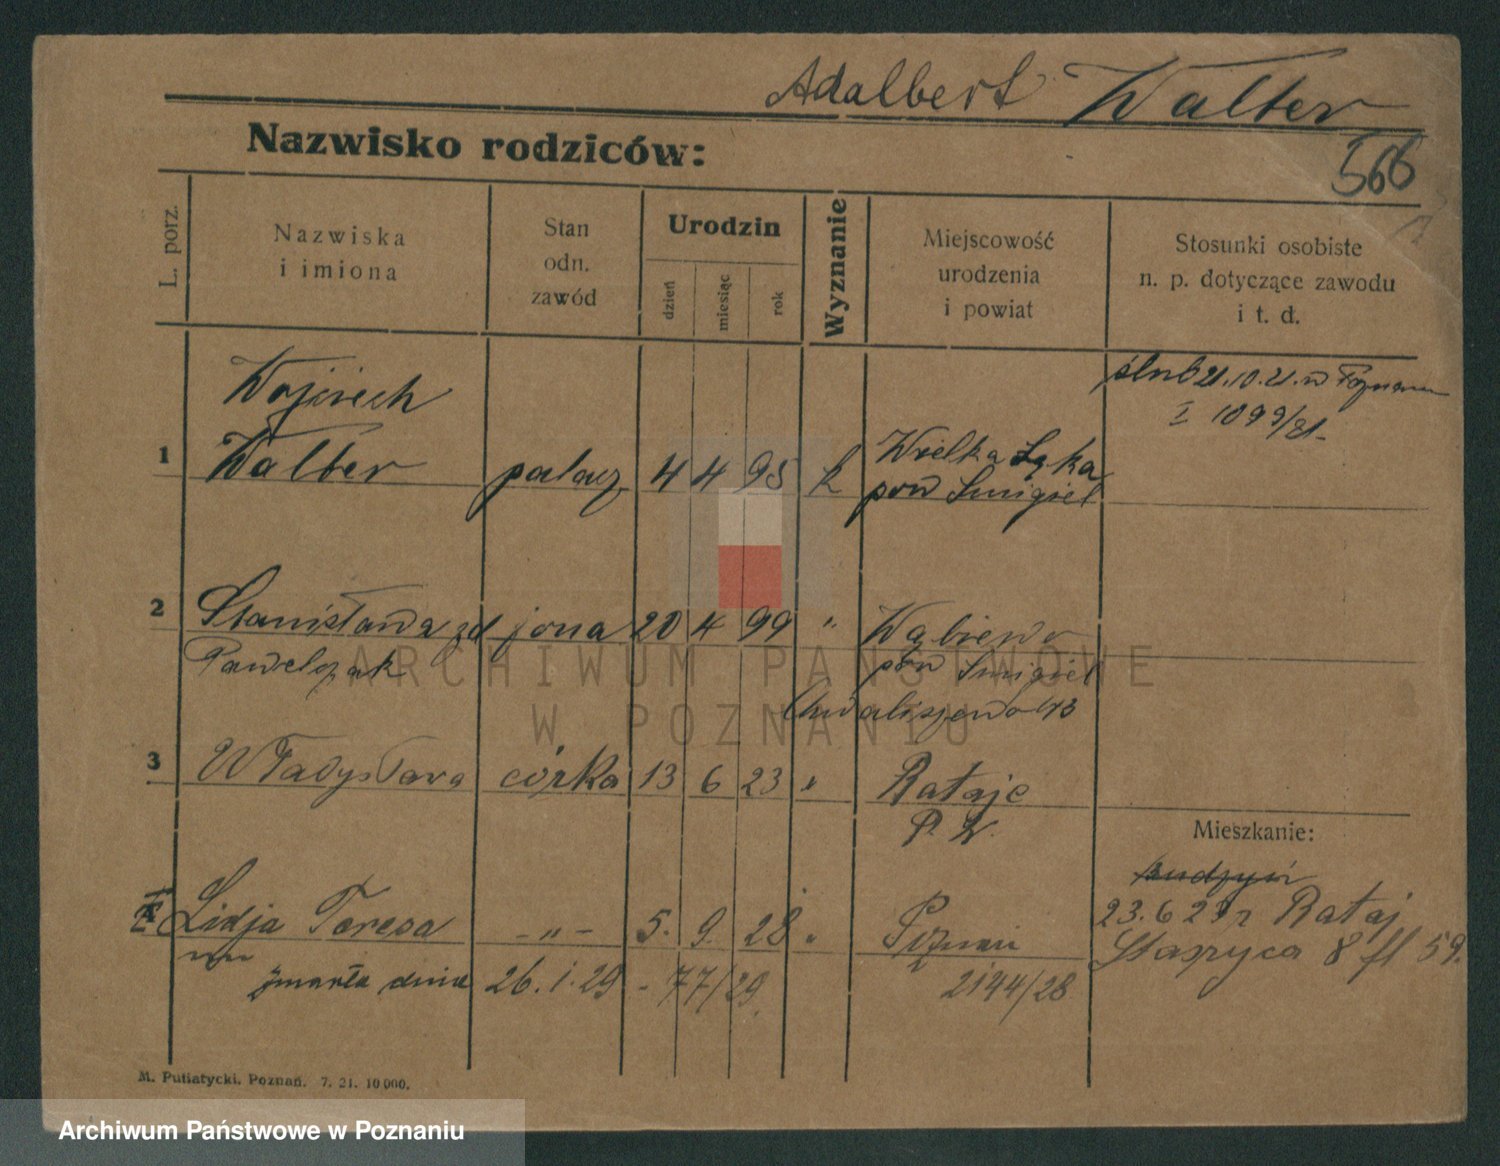 Adalbert Walter
Nazwisko rodziców:
566
L. porz.
Nazwiska
i imiona
Stan
odn.
zawód
Urodzin
dzień
miesiąc
rok
Wyznanie
Miejscowość
urodzenia
i powiat
Stosunki osobiste
n. p. dotyczące zawodu
i t. d.
ślub 21.10.21. w Poznaniu
I 1099/21
Wojciech
1 Walter palacz 4 4 95 k Wielka Łąka
pow Smigiel
2 Stanisława zd żona 20 4 99 " Wąbiewo
Pawelczak pow Smigiel
Chwaliszewo 43
3 Władysława córka 13 6 23 " Rataje
P. W.
Mieszkanie:
4 Lidja Teresa - " - 5. 9. 28 " Poznań
23.6 23 r Rataj
Staszyca 8 fl 59.
zmarła dnia 26.1.29 - 77/29 2144/28
M. Putiatycki, Poznań. 7. 21. 10 000.
ARCHIWUM PAŃSTWOWE
W POZNANIU
Archiwum Państwowe w Poznaniu